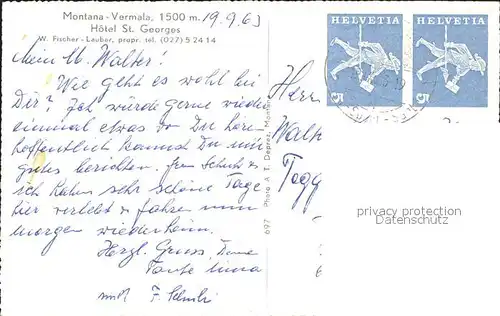 Montana - Vermala, 1500 m.
19.9.63
Hôtel St. Georges
W. Fischer - Lauber, propr. tel. (027) 5 24 14
Mein lb. Walter!
Wie geht es wohl bei
Dir? Ich würde gerne wieder
einmal etwas von Dir hören
hoffentlich kannst Du mir
gutes berichten.
ich haben sehr schöne Tage
hier verlebt & fahren nun
morgen wiederheim.
Herzl. Gruss, Deine
Tante
mit F.
697 Photo A. T. Deprez, Montana
HELVETIA
5
HELVETIA
5
Herrn
Walt
Togg
privacy protection
Datenschutz